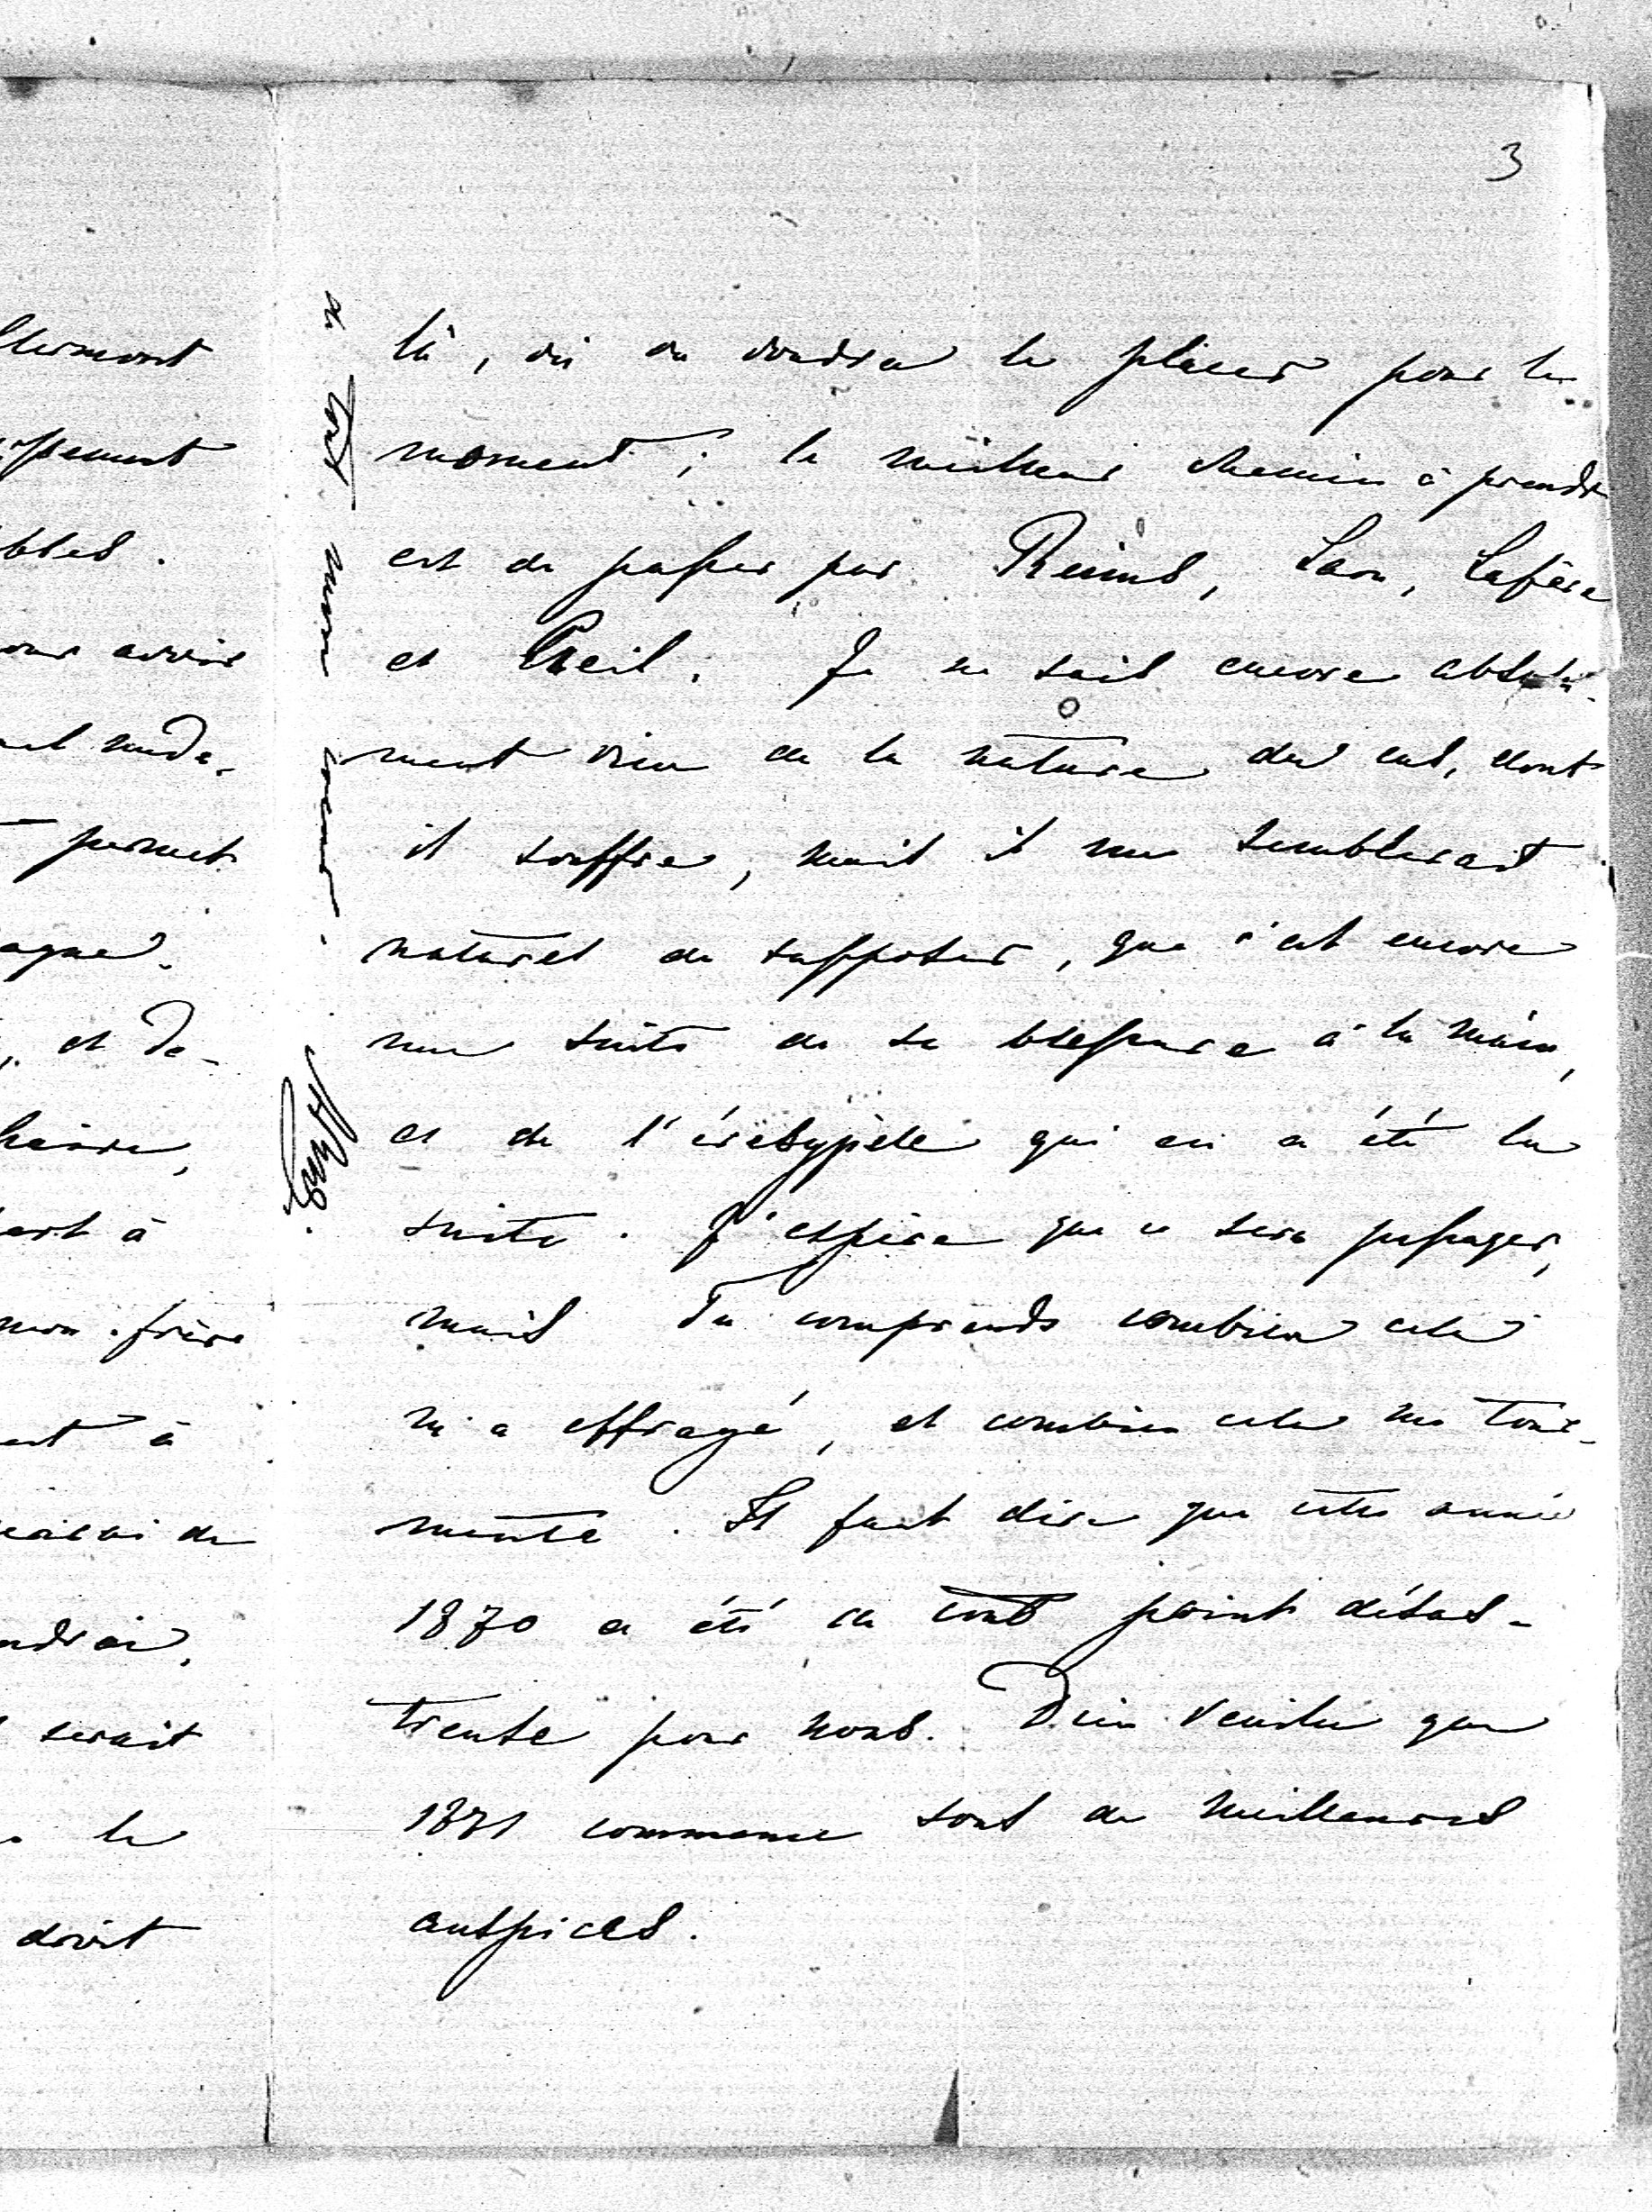 3
là, où on voudra le placer pour le
moment; le meilleur chemin à prendre
est de passer par Reims, Laon, Lafère
et Creil. Je ne sais encore absolu-
ment rien de la nature du cas, dont
il souffre, mais il me semblerait
naturel de supposer, que c'est encore
une suite de sa blessure à la main,
et de l'érésypèle qui en a été la
suite. J'espère que ce sera passager,
mais Tu comprends combien cela
m'a effrayé, et combien cela me tour-
mente. Il faut dire que cette année
1870 a été en tout point désas-
treuse pour nous. Dieu veuille que
1871 commence sous de meilleures
auspices.
de tout mon coeur.
Clermont
bles.
avoir
permet
et de-
mon frère
à
de
serait
le
doit